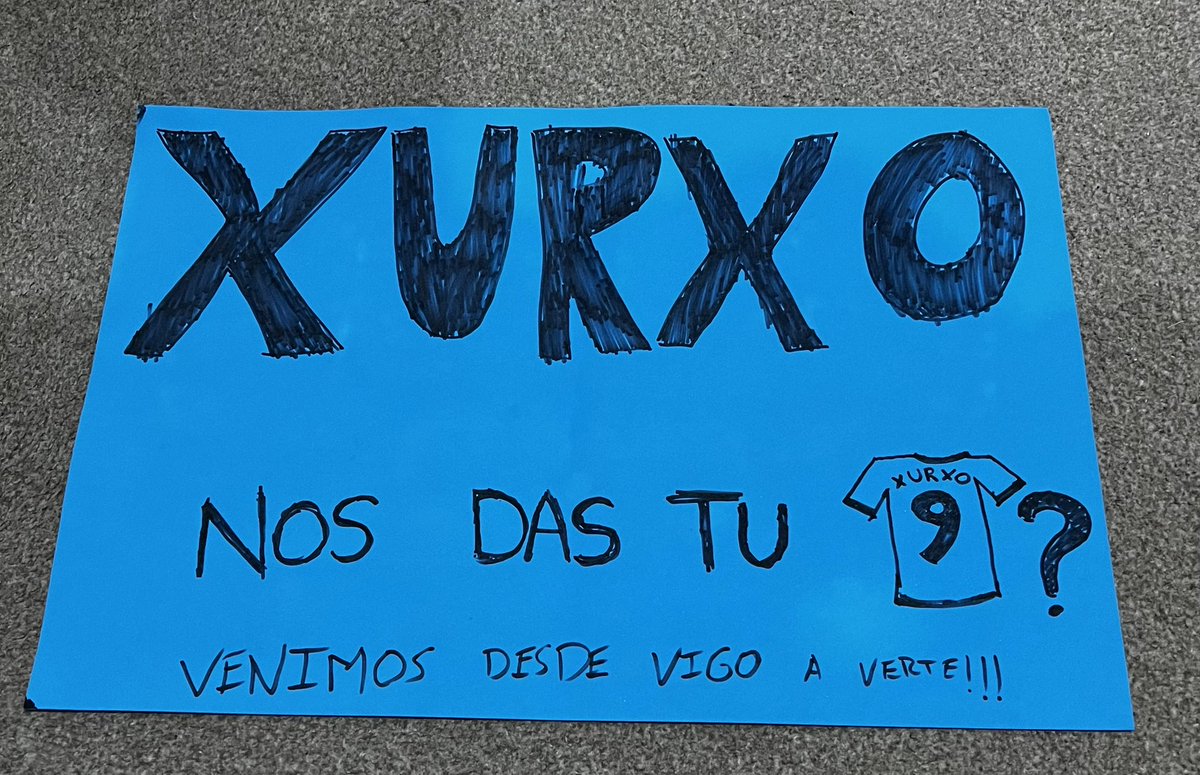 XURXO
NOS DAS TU XURXO 9?
VENIMOS DESDE VIGO A VERTE!!!